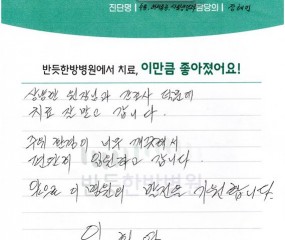 진단명 담당의
반듯한방병원에서 치료, 이만큼 좋아졌어요!
상냥한 원장님과 간호사 덕분에
치료 잘 받고 갑니다.
주위 환경이 너무 깨끗해서
편안히 입원하고 갑니다.
앞으로 이 병원의 발전을 기원합니다.
반듯한방병원